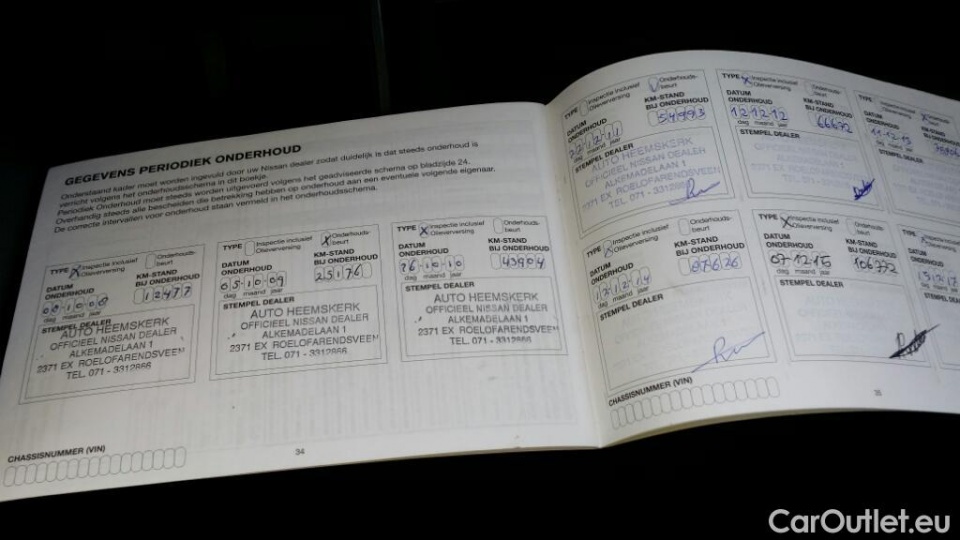 GEGEVENS PERIODIEK ONDERHOUD
Onderstaand kader moet worden ingevuld door uw Nissan dealer zodat duidelijk is dat steeds onderhoud is
verricht volgens het onderhoudsschema in dit boekje.
Periodiek Onderhoud moet steeds worden uitgevoerd volgens het geadviseerde schema op bladzijde 24.
Overhandig steeds alle bescheiden die betrekking hebben op onderhoud aan een eventuele volgende eigenaar.
De correcte intervallen voor onderhoud staan vermeld in het onderhoudsschema.
TYPE X Inspectie inclusief Olieverversing Onderhouds-beurt
DATUM ONDERHOUD KM-STAND BIJ ONDERHOUD
12477
dag maand jaar
STEMPEL DEALER
AUTO HEEMSKERK
OFFICIEEL NISSAN DEALER
ALKEMADELAAN 1
2371 EX ROELOFARENDSVEEN
TEL. 071 - 3312866
TYPE Inspectie inclusief Olieverversing X Onderhouds-beurt
DATUM ONDERHOUD KM-STAND BIJ ONDERHOUD
05-10-09 25176
dag maand jaar
STEMPEL DEALER
AUTO HEEMSKERK
OFFICIEEL NISSAN DEALER
ALKEMADELAAN 1
2371 EX ROELOFARENDSVEEN
TEL. 071 - 3312866
TYPE X Inspectie inclusief Olieverversing Onderhouds-beurt
DATUM ONDERHOUD KM-STAND BIJ ONDERHOUD
26-10-10 43904
dag maand jaar
STEMPEL DEALER
AUTO HEEMSKERK
OFFICIEEL NISSAN DEALER
ALKEMADELAAN 1
2371 EX ROELOFARENDSVEEN
TEL. 071 - 3312866
CHASSISNUMMER (VIN)
34
TYPE Inspectie inclusief Olieverversing Onderhouds-beurt
DATUM ONDERHOUD KM-STAND BIJ ONDERHOUD
54993
dag maand jaar
STEMPEL DEALER
AUTO HEEMSKERK
OFFICIEEL NISSAN DEALER
ALKEMADELAAN 1
2371 EX ROELOFARENDSVEEN
TEL. 071 - 3312866
TYPE X Inspectie inclusief Olieverversing Onderhouds-beurt
DATUM ONDERHOUD KM-STAND BIJ ONDERHOUD
12-12-12 66672
dag maand jaar
STEMPEL DEALER
TYPE
DATUM ONDERHOUD
dag maand jaar
STEMPEL DEALER
TYPE X Inspectie inclusief Olieverversing Onderhouds-beurt
DATUM ONDERHOUD KM-STAND BIJ ONDERHOUD
dag maand jaar
STEMPEL DEALER
TYPE X Inspectie inclusief Olieverversing Onderhouds-beurt
DATUM ONDERHOUD KM-STAND BIJ ONDERHOUD
07-12-15 106772
dag maand jaar
STEMPEL DEALER
TYPE
DATUM ONDERHOUD
STEMPEL DEALER
CHASSISNUMMER (VIN)
35
CarOutlet.eu